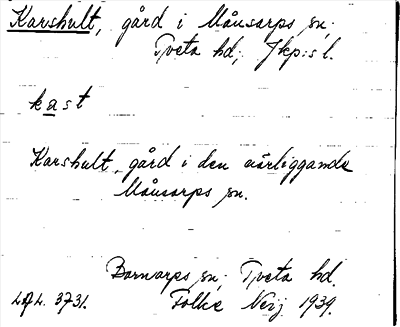 Karshult, gård i Månsarps sn.
Tveta hd; Jkp:s l.
kast
Karshult, gård i den närliggande
Månsarps sn.
Barnarps sn; Tveta hd.
3731. Folke Neij 1939.